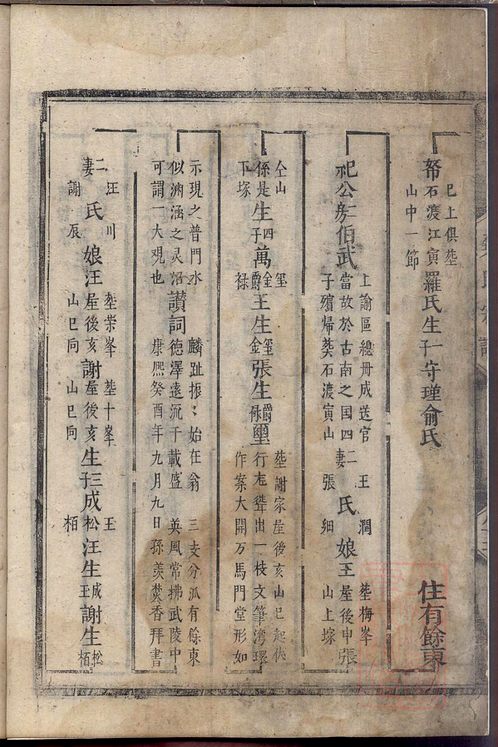 帑 巳上俱塟石渡江寅山中一節 羅氏生子一守瑾俞氏
住有餘東
祀公房伯武 上諭區總冊成送官當故於古南之国四子殯歸葬石渡寅山 二妻王潤張細 氏娘 王塟梅峯屋後申山上塜 張
仝山係是下塜 生四子萬璽金爵祿 王生璽金張生爵祿 璽塟謝家屋後亥山巳起伏行左聳出一枝文筆湾環作案大開万馬門堂形如
示現之普門水似渊涵之灵沼可謂一大觀也 讃詞 麟趾振振始在翁 三支分派有餘東
德澤遠流千載盛 英風常拂武陵中
康熙癸酉年九月九日孫羡焚香拜書
二妻汪川謝辰 氏娘汪塟崇峯屋後亥山巳向謝塟十峯屋後亥山巳向生三子成松王栢汪生成王謝生松栢